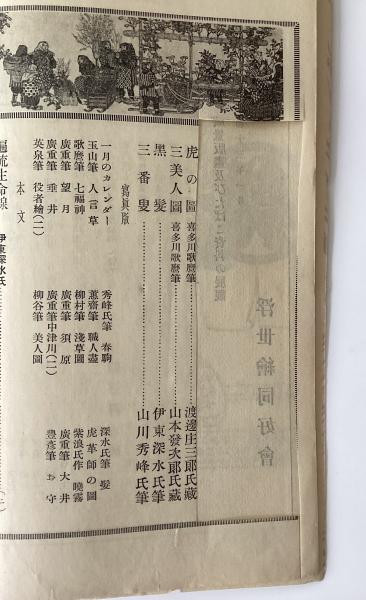 虎の圖 喜多川歌麿筆 渡邊庄三郎氏藏
三美人圖 喜多川歌麿筆 山本發次郎氏藏
黑髮 伊東深水氏筆
三番叟 山川秀峰氏筆
寫眞版
一月のカレンダー 秀峰氏筆 春駒 深水氏筆 髮
玉山筆 人言草 蕙齋筆 職人盡 虎革師の圖
歌麿筆 七福神 柳村筆 淺草圖 紫浪氏作 曉霧
廣重筆 望月 廣重筆 須原 廣重筆 大井
廣重筆 垂井 廣重筆 中津川(二) 豊彦筆 お守
英泉筆 役者繪(二) 柳谷筆 美人圖
本文
伊東深水氏
浮世繪同好會